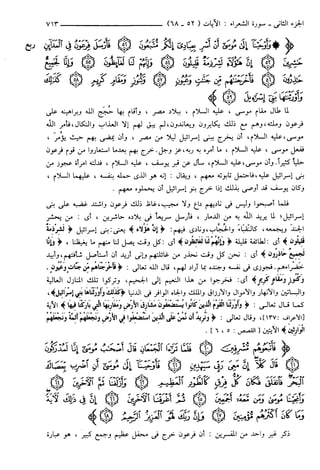 الجزء الثانى - سورة الشعراء : الآيات ( ٥٢ - ٦٨ ) ٧١٣
ربع
﴿ وَأَوْحَيْنَا إِلَىٰ مُوسَىٰ أَنْ أَسْرِ بِعِبَادِي إِنَّكُم مُّتَّبَعُونَ ٥٢ فَأَرْسَلَ فِرْعَوْنُ فِي الْمَدَائِنِ
حَاشِرِينَ ٥٣ إِنَّ هَٰؤُلَاءِ لَشِرْذِمَةٌ قَلِيلُونَ ٥٤ وَإِنَّهُمْ لَنَا لَغَائِظُونَ ٥٥ وَإِنَّا لَجَمِيعٌ
حَاذِرُونَ ٥٦ فَأَخْرَجْنَاهُم مِّن جَنَّاتٍ وَعُيُونٍ ٥٧ وَكُنُوزٍ وَمَقَامٍ كَرِيمٍ ٥٨ كَذَٰلِكَ
وَأَوْرَثْنَاهَا بَنِي إِسْرَائِيلَ ٥٩ ﴾
لما طال مقام موسى ، عليه السلام ، ببلاد مصر ، وأقام بها حجج الله وبراهينه على
فرعون وملئه، وهم مع ذلك يكابرون ويعاندون، لم يبق لهم إلا العذاب والنكال، فأمر الله
موسى، عليه السلام، أن يخرج ببنى إسرائيل ليلا من مصر ، وأن يمضى بهم حيث يؤمر ،
ففعل موسى ، عليه السلام ، ما أمره به ربه، عز وجل. خرج بهم بعدما استعاروا من قوم فرعون
حليا كثيراً. وأن موسى، عليه السلام، سأل عن قبر يوسف ، عليه السلام ، فدلته امرأة عجوز من
بنى إسرائيل عليه، فاحتمل تابوته معهم ، ويقال : إنه هو الذى حمله بنفسه ، عليهما السلام ،
وكان يوسف قد أوصى بذلك إذا خرج بنو إسرائيل أن يحملوه معهم .
فلما أصبحوا وليس فى ناديهم داع ولا مجيب، غاظ ذلك فرعون واشتد غضبه على بنى
إسرائيل؛ لما يريد الله به من الدمار ، فأرسل سريعاً فى بلاده حاشرين ، أى : من يحشر
الجند ويجمعه، كالنقباء والحجاب، ونادى فيهم: ﴿ إن هؤلاء ﴾ يعنى: بنى إسرائيل ﴿ لشرذمة
قليلون ﴾ أى : لطائفة قليلة ﴿ وإنهم لنا لغائظون ﴾ أى : كل وقت يصل لنا منهم ما يغيظنا ، ﴿ وإنا
لجميع حاذرون ﴾ أى : نحن كل وقت نحذر من غائلتهم وإنى أريد أن أستأصل شأفتهم، وأبيد
خضراءهم. فجوزى فى نفسه وجنده بما أراد لهم، قال الله تعالى : ﴿ فأخرجناهم من جنات وعيون .
وكنوز ومقام كريم ﴾ أى : فخرجوا من هذا النعيم إلى الجحيم، وتركوا تلك المنازل العالية
والبساتين والأنهار والأموال والأرزاق والملك والجاه الوافر فى الدنيا ﴿ كذلك وأورثناها بنى إسرائيل ﴾،
كما قال تعالى : ﴿ وأورثنا القوم الذين كانوا يستضعفون مشارق الأرض ومغاربها التى باركنا فيها ﴾ الآية
[الأعراف: ١٣٧]، وقال تعالى : ﴿ ونريد أن نمن على الذين استضعفوا فى الأرض ونجعلهم أئمة ونجعلهم
الوارثين ﴾ [ القصص : ٥ ، ٦ ] .
﴿ فَأَتْبَعُوهُم مُّشْرِقِينَ ٦٠ فَلَمَّا تَرَاءَى الْجَمْعَانِ قَالَ أَصْحَابُ مُوسَىٰ إِنَّا لَمُدْرَكُونَ
٦١ قَالَ كَلَّا إِنَّ مَعِيَ رَبِّي سَيَهْدِينِ ٦٢ فَأَوْحَيْنَا إِلَىٰ مُوسَىٰ أَنِ اضْرِب بِّعَصَاكَ
الْبَحْرَ فَانفَلَقَ فَكَانَ كُلُّ فِرْقٍ كَالطَّوْدِ الْعَظِيمِ ٦٣ وَأَزْلَفْنَا ثَمَّ الْآخَرِينَ ٦٤
وَأَنجَيْنَا مُوسَىٰ وَمَن مَّعَهُ أَجْمَعِينَ ٦٥ ثُمَّ أَغْرَقْنَا الْآخَرِينَ ٦٦ إِنَّ فِي ذَٰلِكَ لَآيَةً
وَمَا كَانَ أَكْثَرُهُم مُّؤْمِنِينَ ٦٧ وَإِنَّ رَبَّكَ لَهُوَ الْعَزِيزُ الرَّحِيمُ ٦٨ ﴾
ذكر غير واحد من المفسرين : أن فرعون خرج فى محفل عظيم وجمع كبير ، هو عبارة